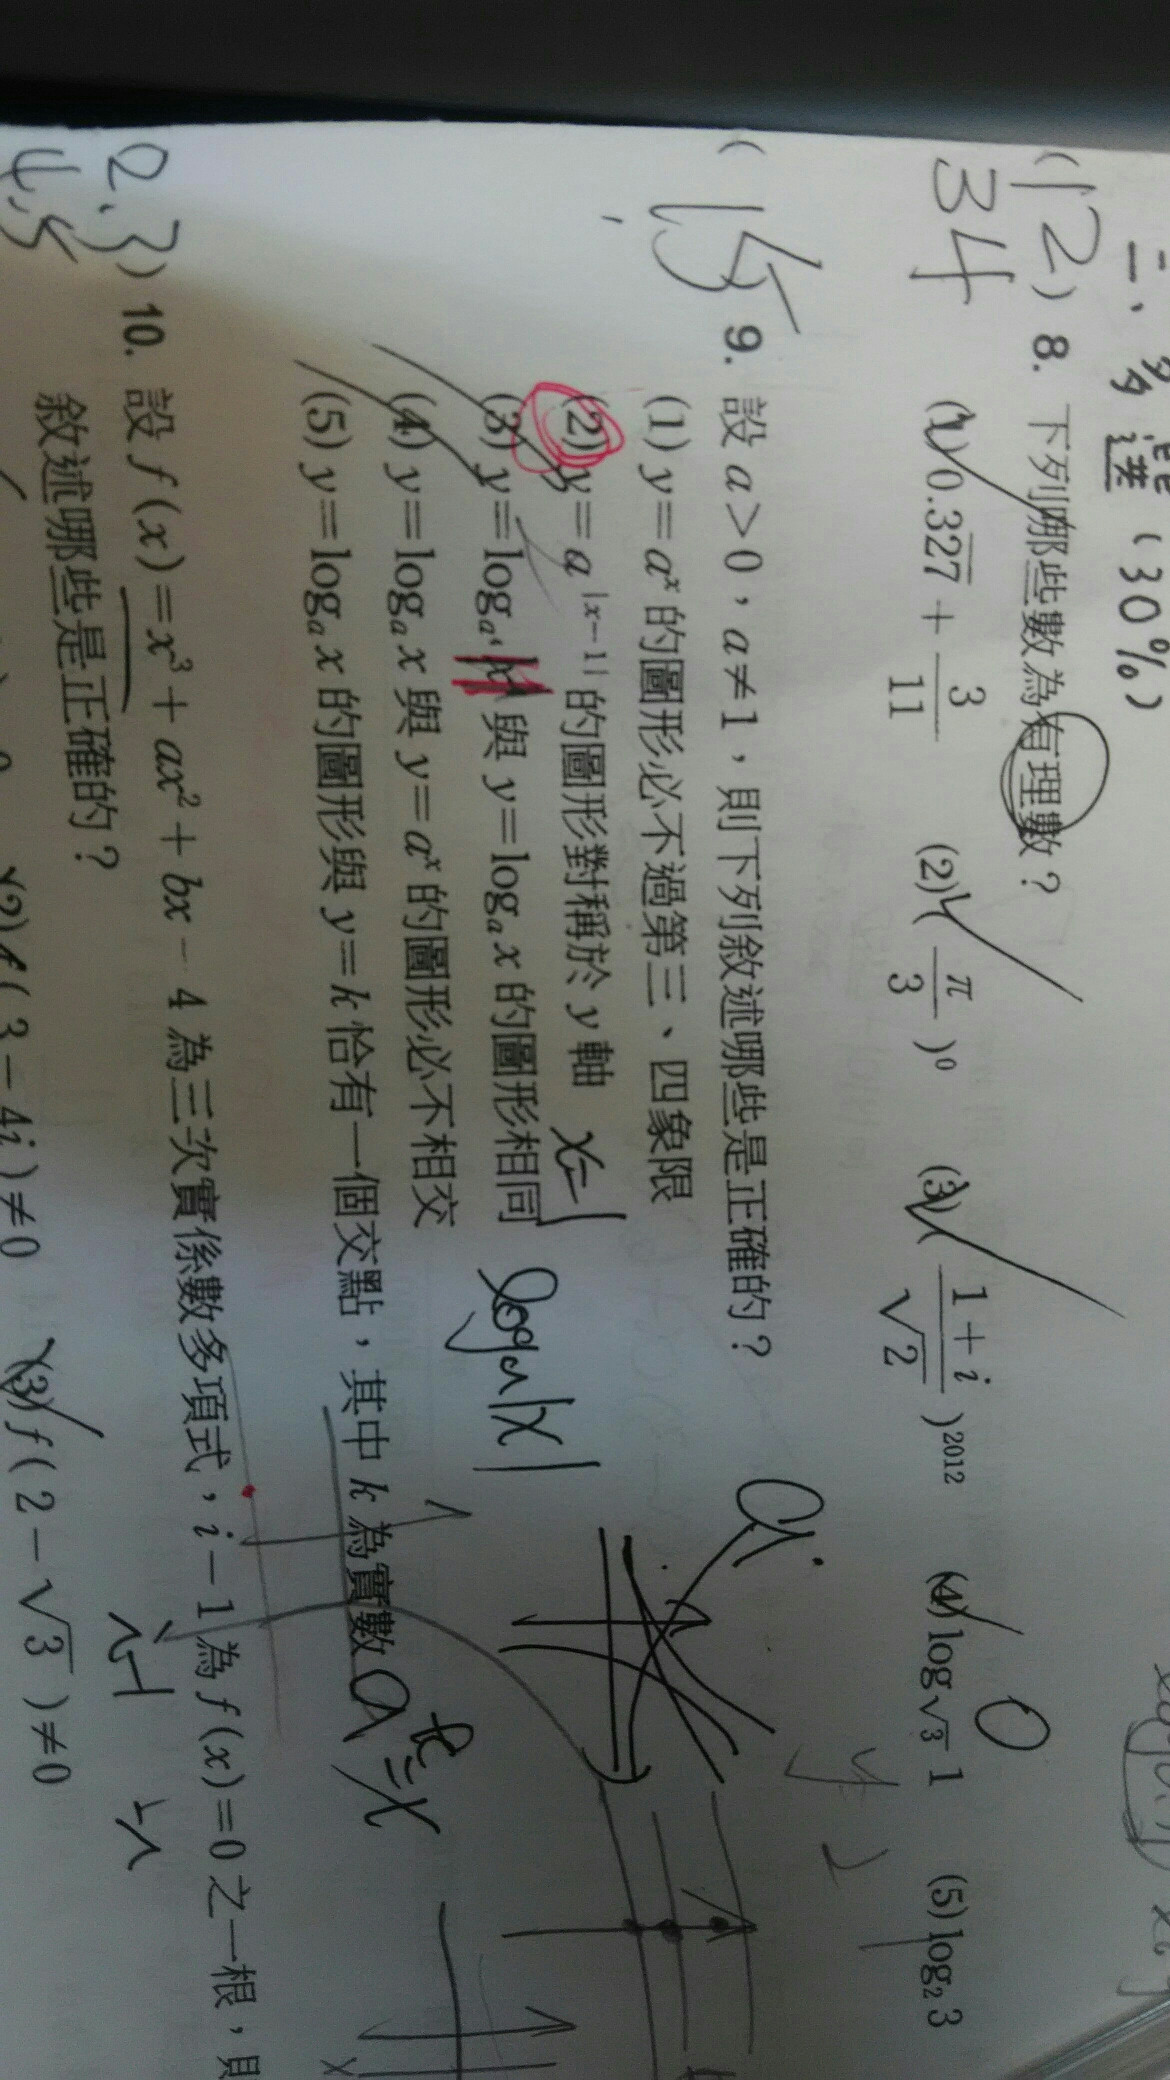 二、多選(30%)
(12) 8. 下列哪些數為有理數?
34 (1) 0.327 + 3/11 (2) (π/3)⁰ (3) ((1+i)/√2)²⁰¹² (4) log√3 1 (5) log₂ 3
0
(15 9. 設 a>0,a≠1,則下列敘述哪些是正確的?
(1) y=aˣ 的圖形必不過第三、四象限
(2) y=a^|x-1| 的圖形對稱於 y 軸 x=1
(3) y=logₐ 與 y=logₐ x 的圖形相同 logₐ|x|
(4) y=logₐ x 與 y=aˣ 的圖形必不相交
(5) y=logₐ x 的圖形與 y=k 恰有一個交點,其中 k 為實數 aᵏ=x
2.3) 10. 設 f(x)=x³+ax²+bx-4 為三次實係數多項式,i-1 為 f(x)=0 之一根,則
4,5 敘述哪些是正確的?
(2) f(3-4i)≠0 (3) f(2-√3)≠0